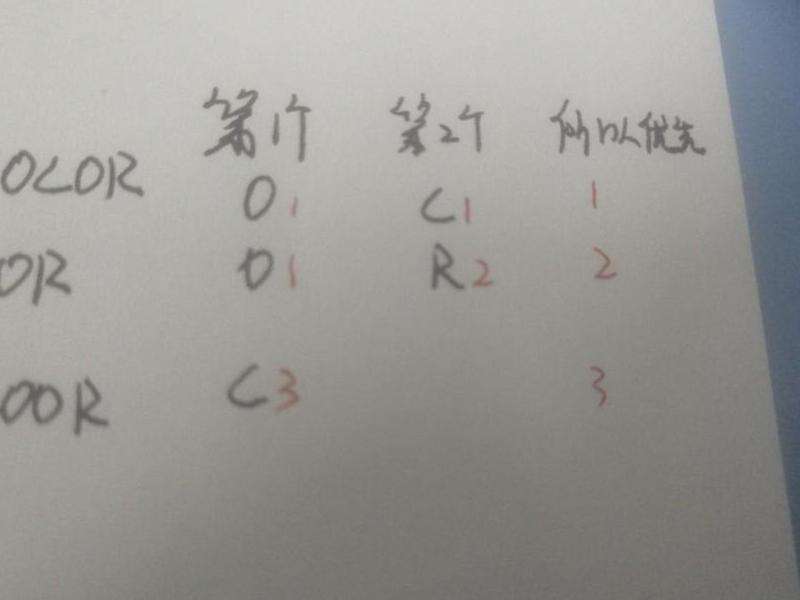 第1个 第2个 所以优先
OCOR O1 C1 1
OR O1 R2 2
OOR C3 3